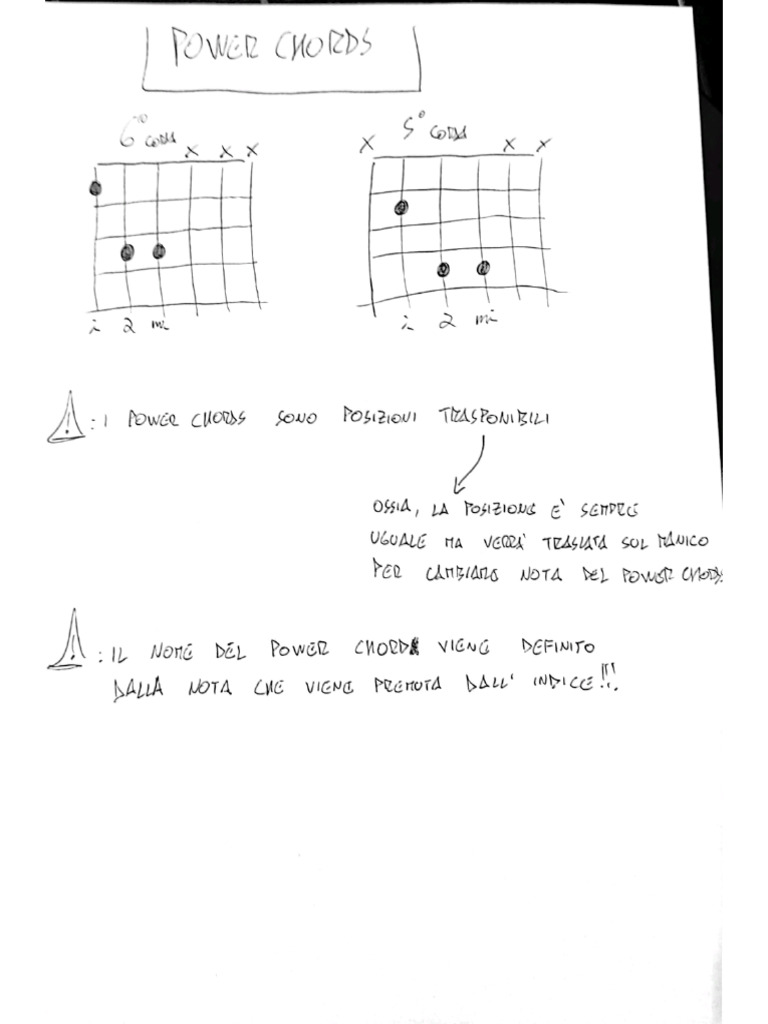 POWER CHORDS
6° CORDA
5° CORDA
X X X
X X X
i 2 mi
i 2 mi
: I POWER CHORDS SONO POSIZIONI TRASPONIBILI
OSSIA, LA POSIZIONE E' SEMPRE
UGUALE MA VERRA' TRASLATA SUL MANICO
PER CAMBIARE NOTA DEL POWER CHORD.
! : IL NOME DEL POWER CHORD VIENE DEFINITO
DALLA NOTA CHE VIENE PREMUTA DALL' INDICE!!!